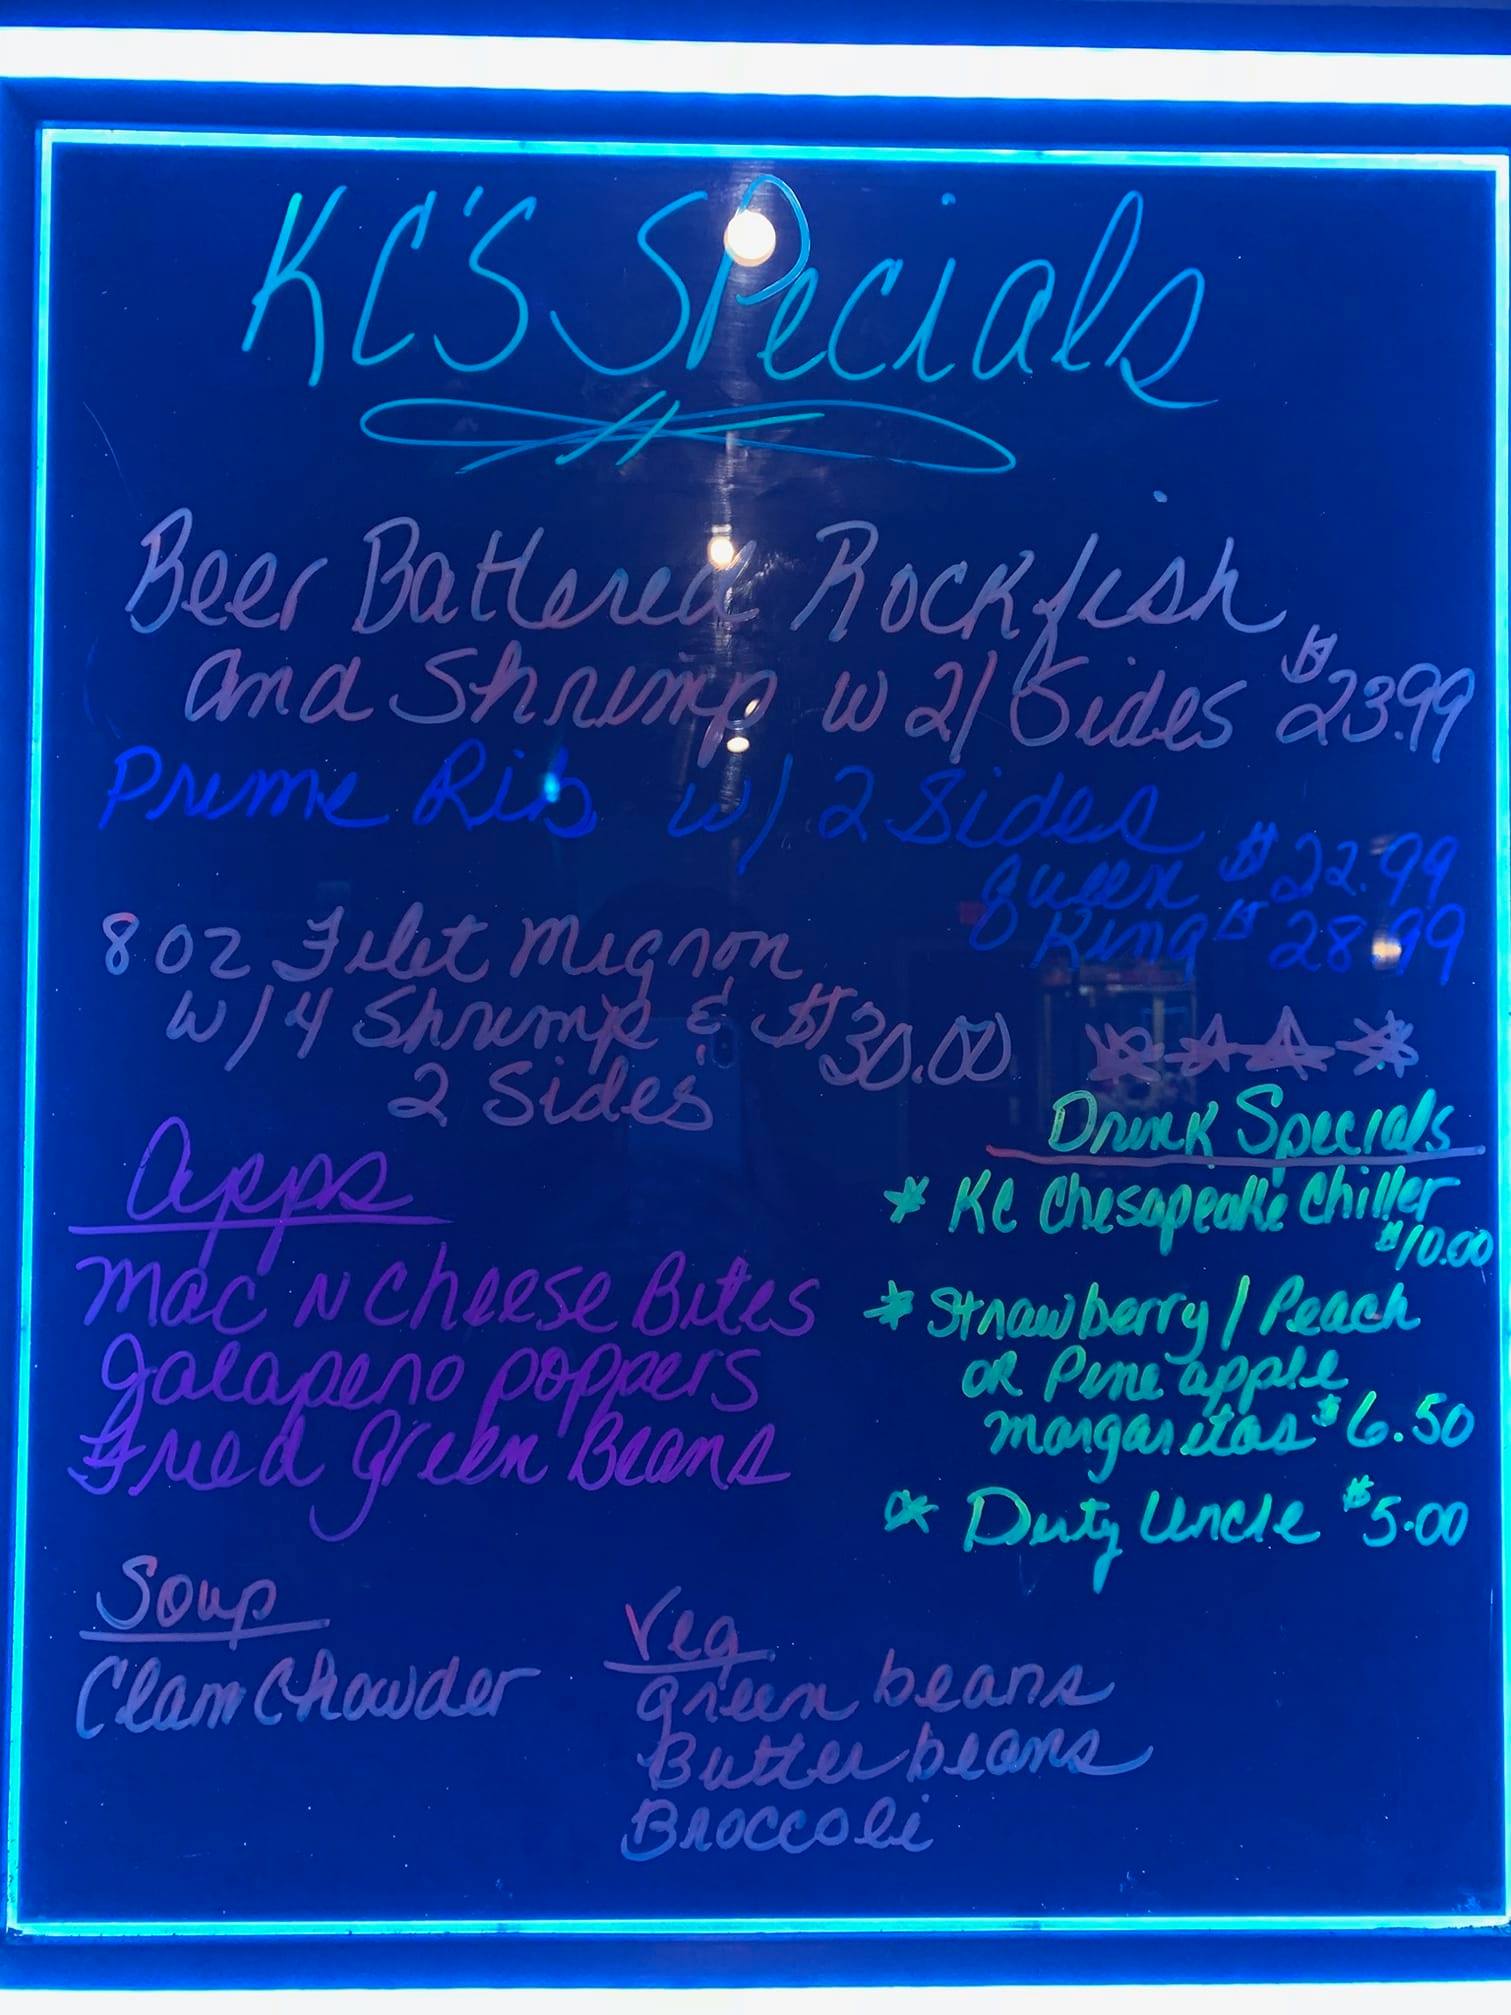 KC'S Specials
Beer Battered Rockfish
and Shrimp w 2/ Sides $23.99
Prime Rib w/ 2 Sides
Queen $22.99
King $28.99
8 oz Filet Mignon
w/4 Shrimp & $30.00
2 Sides
Apps
Mac N Cheese Bites
Jalapeno poppers
Fried Green Beans
Drink Specials
* KC Chesapeake Chiller
$10.00
* Strawberry / Peach
OR Pineapple
margaritas $6.50
* Dirty Uncle $5.00
Soup
Clam Chowder
Veg
green beans
Butter beans
Broccoli